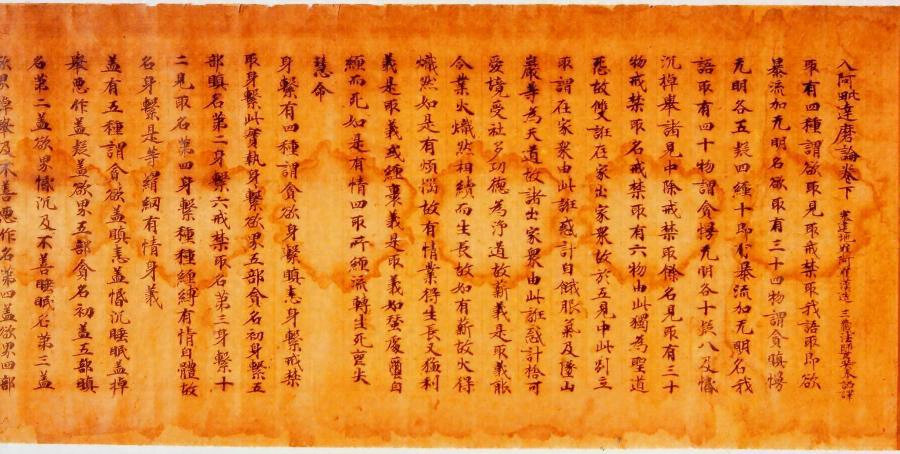 入阿毗達磨論卷下 塞建地羅阿羅漢造 三藏法師玄奘奉詔譯
取有四種謂欲取見取戒禁取我語取即欲
暴流加无明名欲取有三十四物謂貪瞋慢
无明各五疑四纏十即有暴流加无明名我
語取有四十物謂貪慢无明各十疑八及惛
沉掉舉諸見中除戒禁取餘名見取有三十
物戒禁取名戒禁取有六物由此獨為聖道
怨故雙誑在家出家衆故於五見中此別立
取謂在家衆由此誑惑計自餓服氣及墜山
巖等為天道故諸出家衆由此誑惑計捨可
愛境受杜多功德為淨道故薪義是取義能
令業火熾然相續而生長故如有薪故火得
熾然如是有煩惱故有情業得生長又猛利
義是取義或纏裹義是取義如蠶處繭自
纏而死如是有情四取所纏流轉生死喪失
慧命
身繫有四種謂貪欲身繫瞋恚身繫戒禁
取身繫此實執身繫欲界五部貪名初身繫五
部瞋名第二身繫六戒禁取名第三身繫十
二見取名第四身繫種種纏縛有情自體故
名身繫是等羂網有情身義
蓋有五種謂貪欲蓋瞋恚蓋惛沉睡眠蓋掉
舉惡作蓋疑蓋欲界五部貪名初蓋五部瞋
名第二蓋欲界惛沉及不善睡眠名第三蓋
欲界掉舉及不善惡作名第四蓋欲界四部